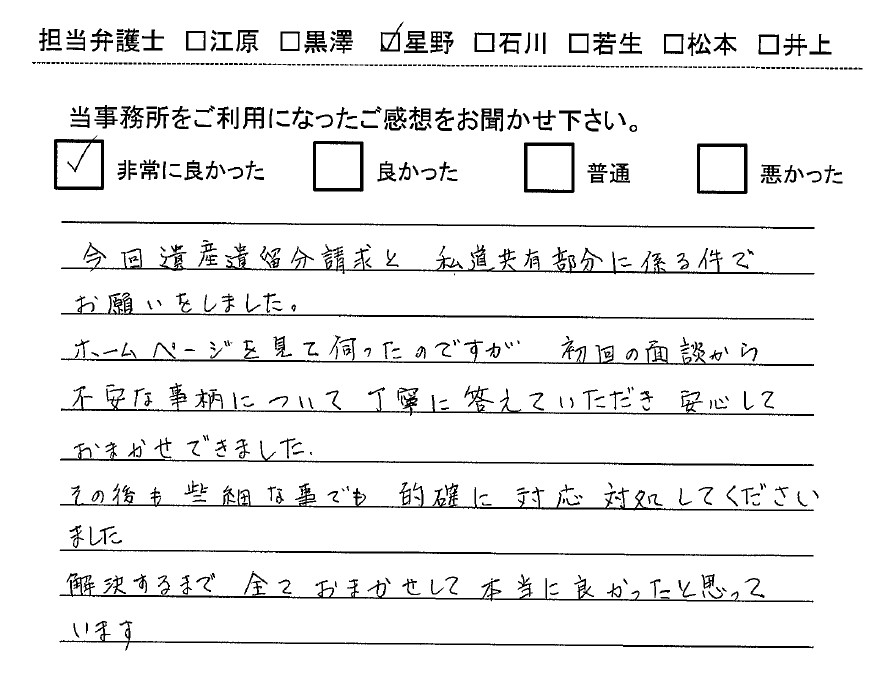 担当弁護士 □江原 □黒澤 ☑星野 □石川 □若生 □松本 □井上
当事務所をご利用になったご感想をお聞かせ下さい。
☑ 非常に良かった □ 良かった □ 普通 □ 悪かった
今回遺産遺留分請求と 私道共有部分に係る件で
お願いをしました。
ホームページを見て伺ったのですが 初回の面談から
不安な事柄について丁寧に答えていただき 安心して
おまかせできました.
その後も些細な事でも 的確に 対応 対処してください
ました
解決するまで 全ておまかせして本当に良かったと思って
います